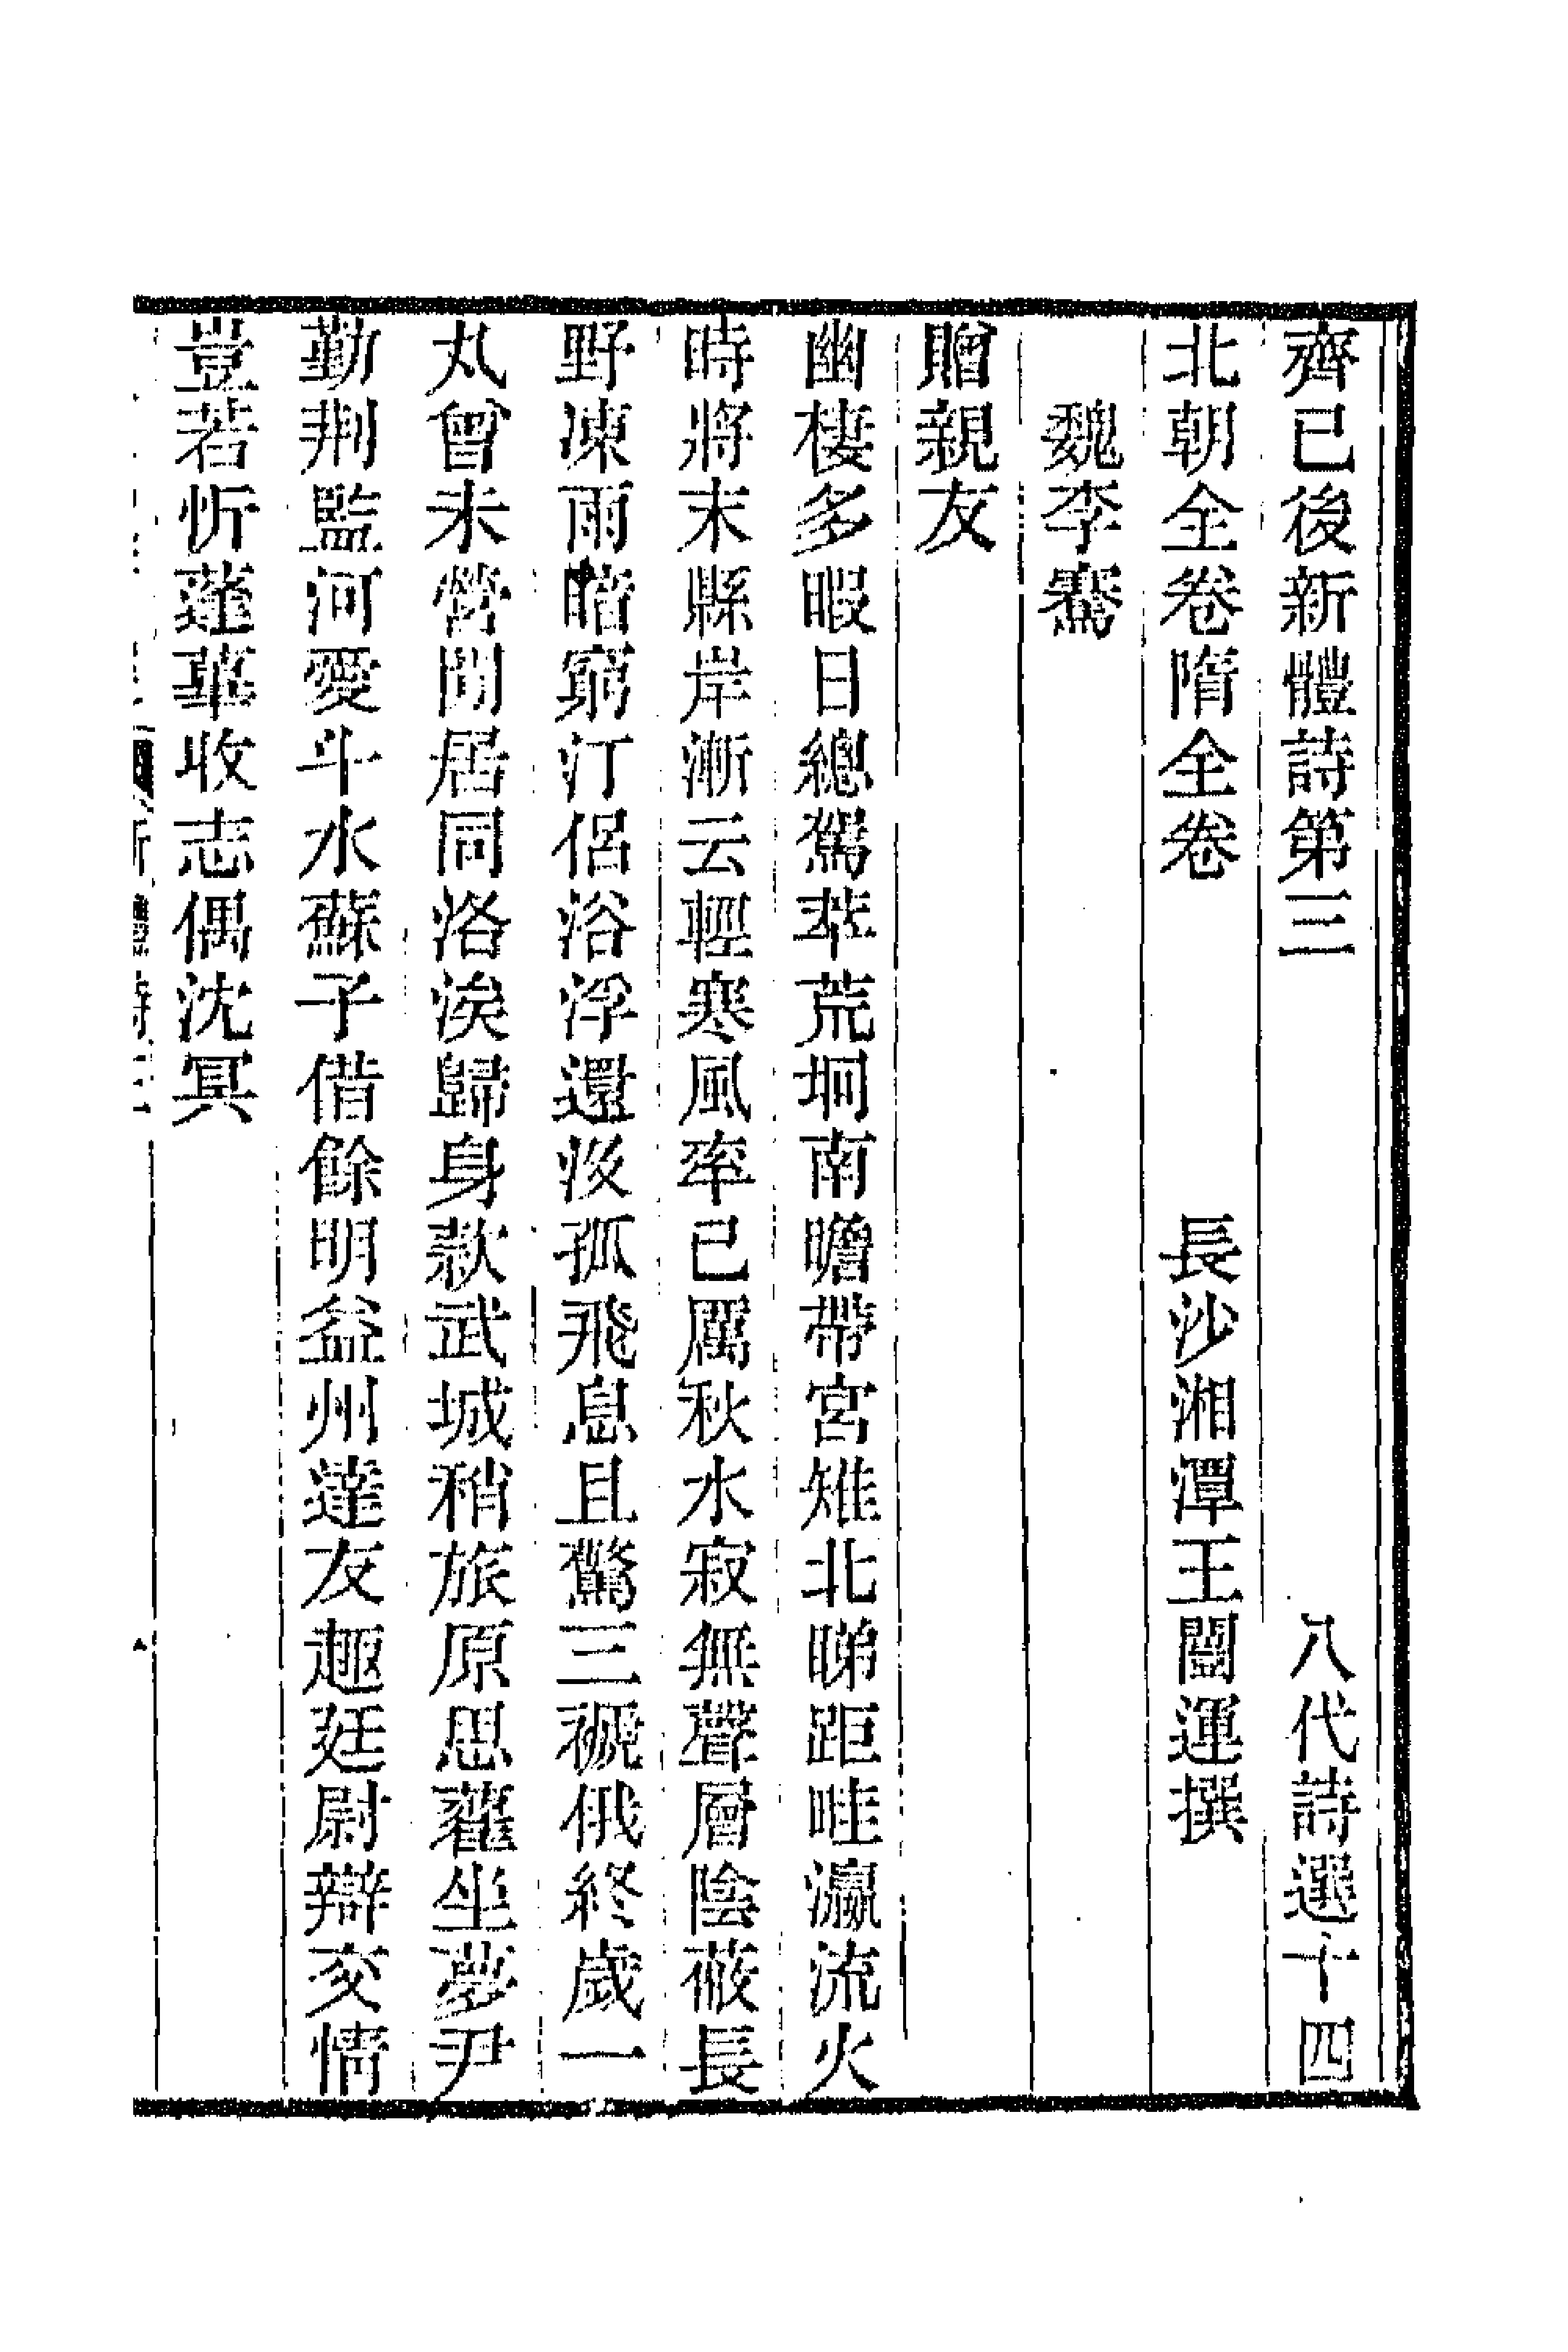 齊已後新體詩第三　八代詩選十四
北朝全卷隋全卷　長沙湘潭王闓運撰
魏李騫
贈親友
幽棲多暇日總駕萃荒坰南瞻帶宮雉北睇距畦瀛流火
時將末縣岸漸云輕寒風率已厲秋水寂無聲層陰蔽長
野凍雨暗窮汀侶浴浮還没孤飛息且驚三褫俄終歲一
丸曾未營閒居同洛涘歸身款武城稍旅原思藋坐夢尹
勤荆監河愛斗水蘇子借餘明益州達友趣廷尉辯交情
豈若忻蓬蓽收志偶沈冥